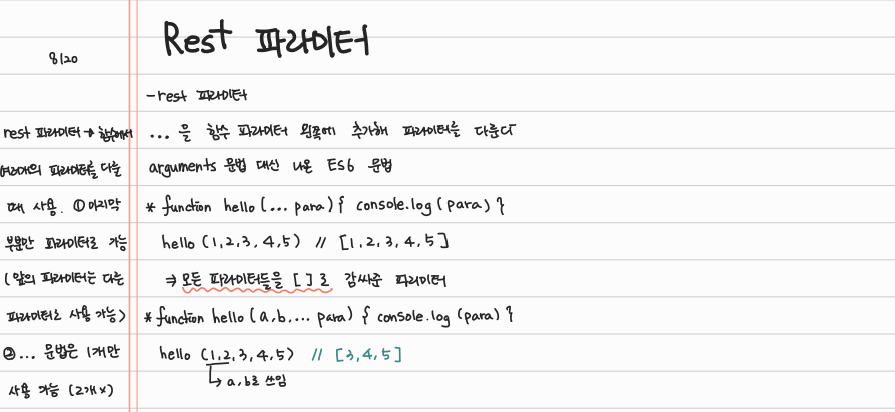 Rest 파라미터
8/20
-rest 파라미터
rest 파라미터 → 함수에서
여러개의 파라미터를 다룰
때 사용. ① 마지막
부분만 파라미터로 가능
(앞의 파라미터는 다른
파라미터로 사용 가능)
② ... 문법은 1개만
사용 가능 (2개 x)
... 을 함수 파라미터 왼쪽에 추가해 파라미터를 다룬다
arguments 문법 대신 나온 ES6 문법
* function hello (... para) { console.log (para) }
hello (1,2,3,4,5) // [1,2,3,4,5]
⇒ 모든 파라미터들을 [ ] 로 감싸준 파라미터
* function hello (a,b,... para) { console.log (para) }
hello (1,2,3,4,5) // [3,4,5]
→ a,b로 쓰임